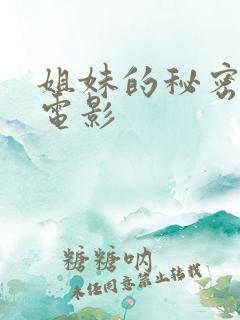 姐妹的秘密
電影
糖糖呐
未经同意禁止转载